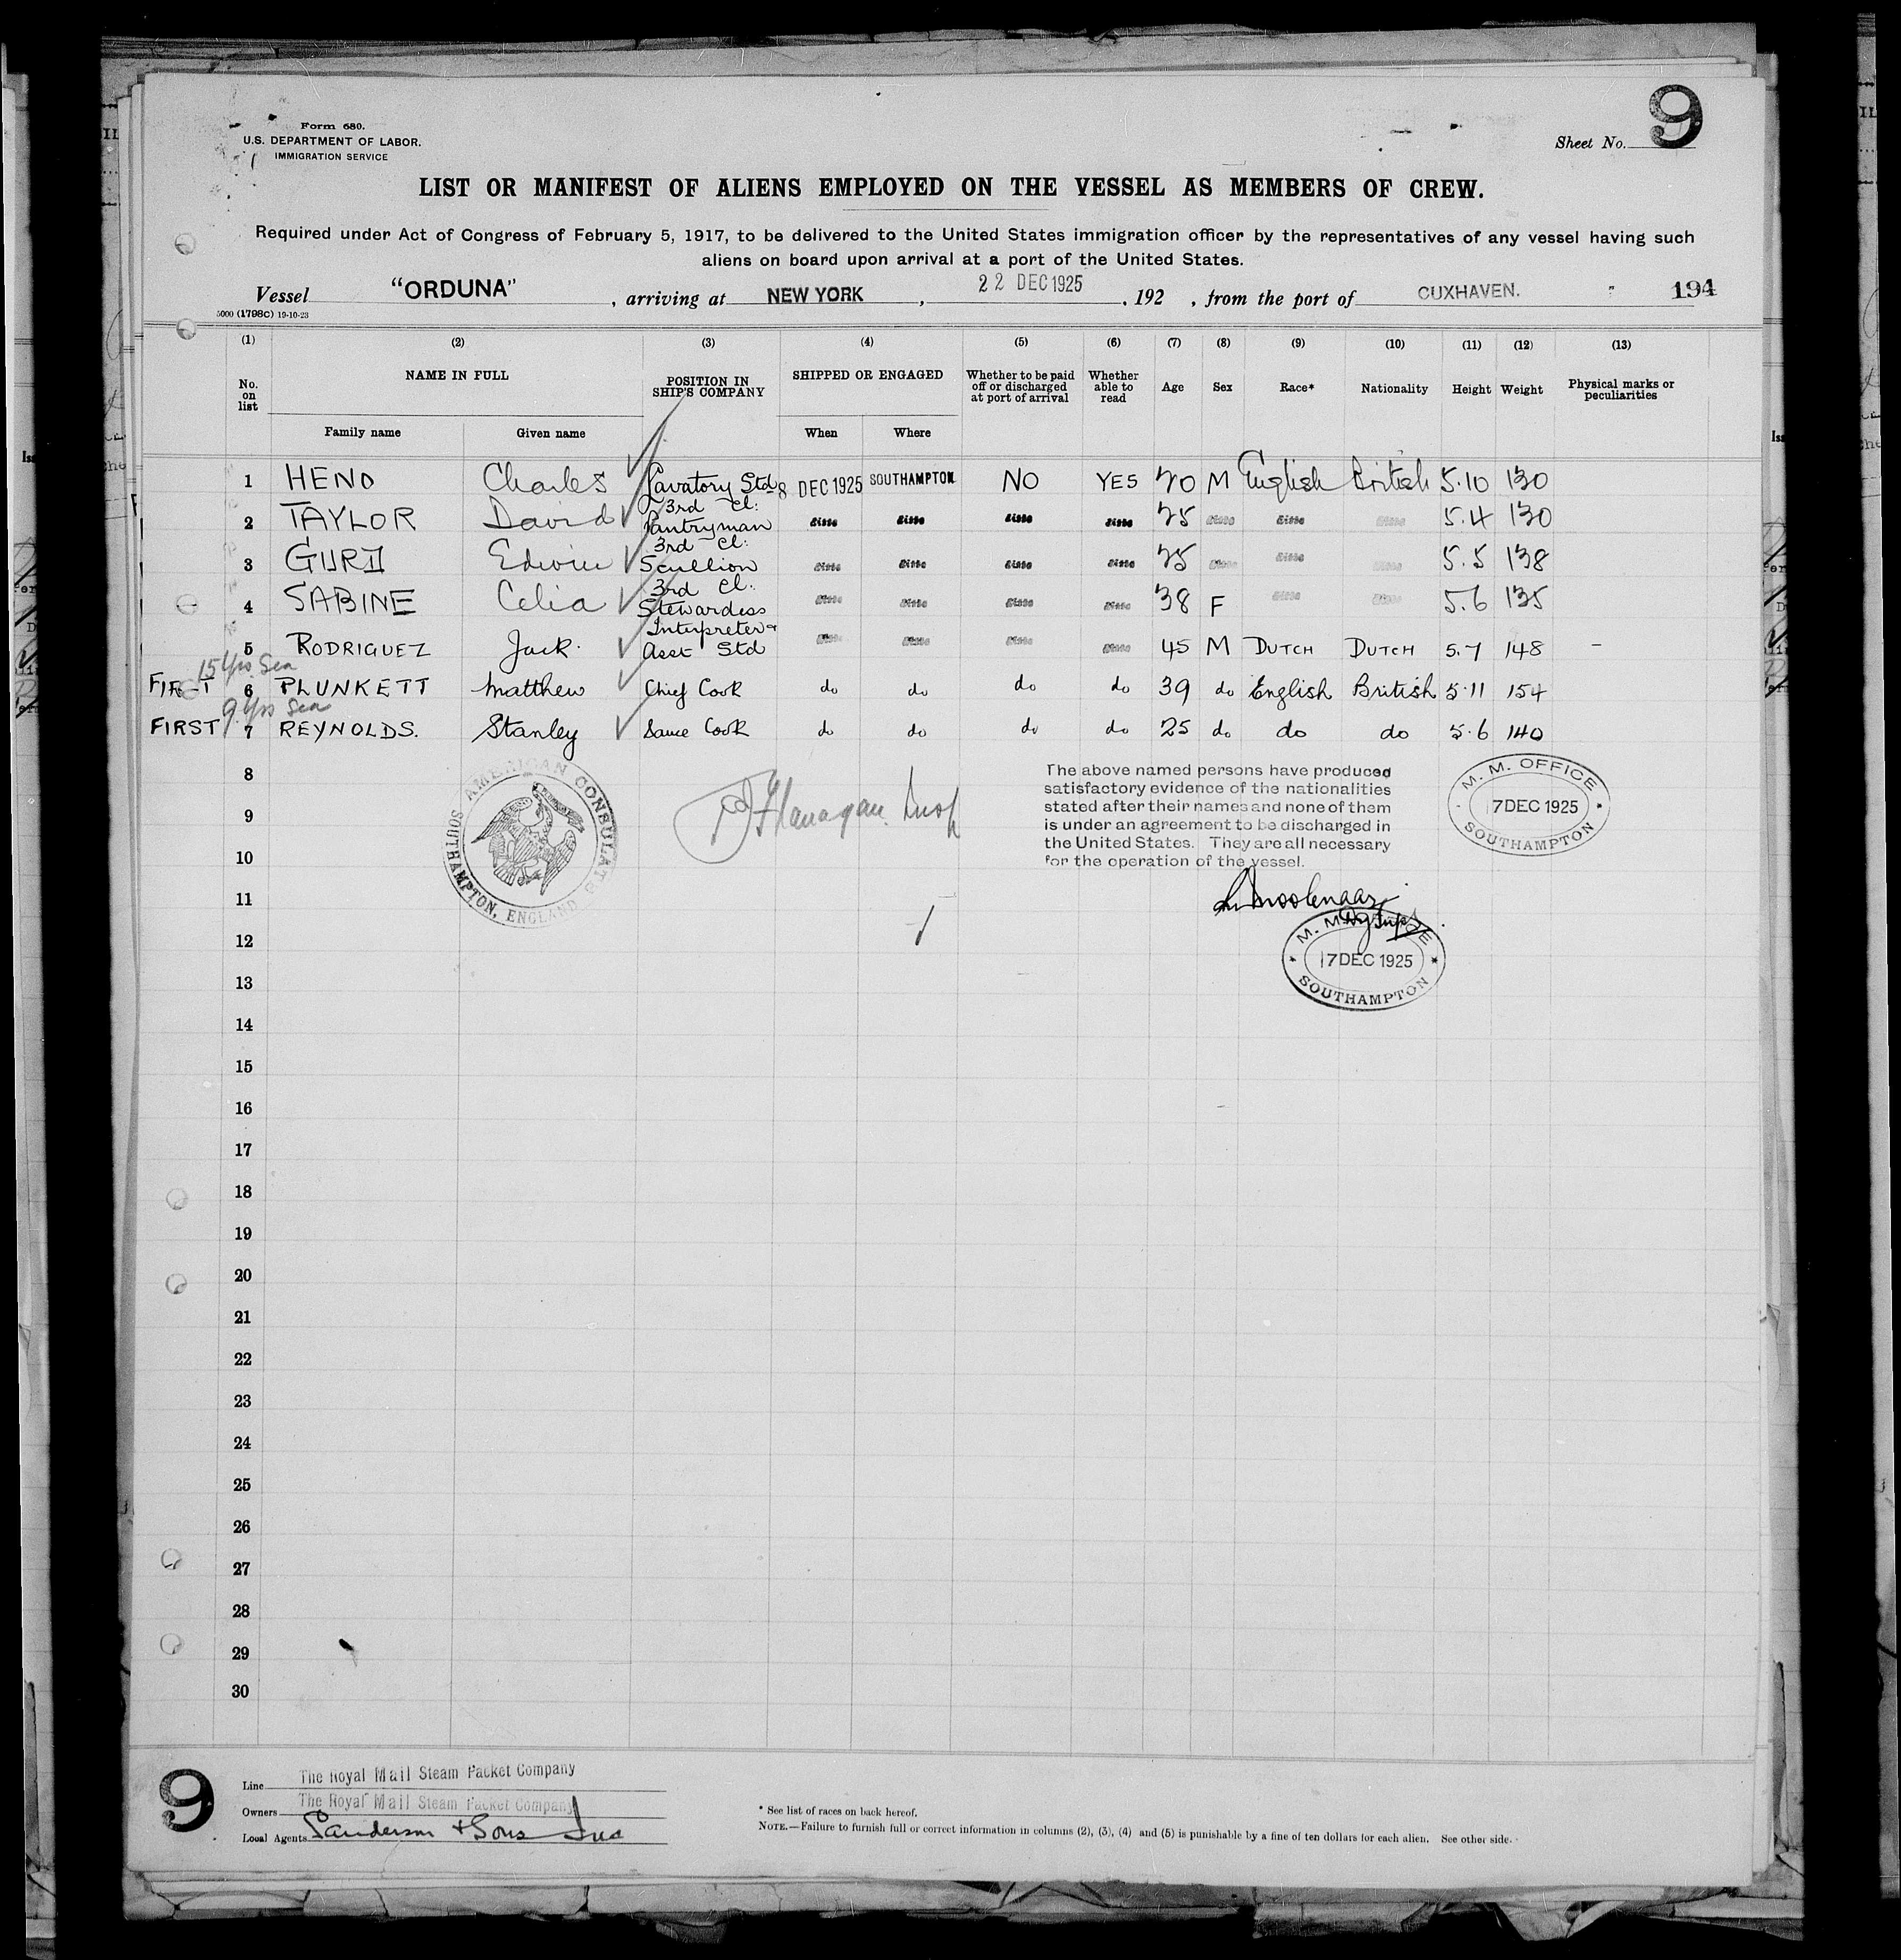 Form 680.
U.S. DEPARTMENT OF LABOR.
IMMIGRATION SERVICE
Sheet No. 9
LIST OR MANIFEST OF ALIENS EMPLOYED ON THE VESSEL AS MEMBERS OF CREW.
Required under Act of Congress of February 5, 1917, to be delivered to the United States immigration officer by the representatives of any vessel having such
aliens on board upon arrival at a port of the United States.
Vessel "ORDUNA", arriving at NEW YORK, 22 DEC 1925, 192 , from the port of CUXHAVEN. " 194
5000 (1798C) 19-10-23
(1) (2) (3) (4) (5) (6) (7) (8) (9) (10) (11) (12) (13)
No. on list NAME IN FULL POSITION IN SHIP'S COMPANY SHIPPED OR ENGAGED Whether to be paid off or discharged at port of arrival Whether able to read Age Sex Race* Nationality Height Weight Physical marks or peculiarities
Family name Given name When Where
1 HEND Charles Lavatory Std 8 DEC 1925 SOUTHAMPTON NO YES 20 M English British 5.10 130
2 TAYLOR David 3rd Cl: Pantryman ditto ditto ditto ditto 25 ditto ditto ditto 5.4 130
3 GURD Edwin 3rd Cl: Scullion ditto ditto ditto ditto 25 ditto ditto ditto 5.5 138
4 SABINE Celia 3rd Cl: Stewardess ditto ditto ditto ditto 38 F ditto ditto 5.6 135
5 RODRIGUEZ Jack. Interpreter & Asst Std ditto ditto ditto ditto 45 M DUTCH DUTCH 5.7 148 –
15 Yrs Sea
FIRST 6 PLUNKETT Matthew Chief Cook do do do do 39 do English British 5.11 154
9 Yrs Sea
FIRST 7 REYNOLDS. Stanley Sauce Cook do do do do 25 do do do 5.6 140
8
9
10
11
12
13
14
15
16
17
18
19
20
21
22
23
24
25
26
27
28
29
30
AMERICAN CONSULATE
SOUTHAMPTON, ENGLAND
Flanagan Insp
The above named persons have produced
satisfactory evidence of the nationalities
stated after their names and none of them
is under an agreement to be discharged in
the United States. They are all necessary
for the operation of the vessel.
M. M. OFFICE
17 DEC 1925
SOUTHAMPTON
M. M. OFFICE
17 DEC 1925
SOUTHAMPTON
9
Line The Royal Mail Steam Packet Company
Owners The Royal Mail Steam Packet Company
Local Agents Sanderson & Sons Inc
* See list of races on back hereof.
NOTE.—Failure to furnish full or correct information in columns (2), (3), (4) and (5) is punishable by a fine of ten dollars for each alien. See other side.